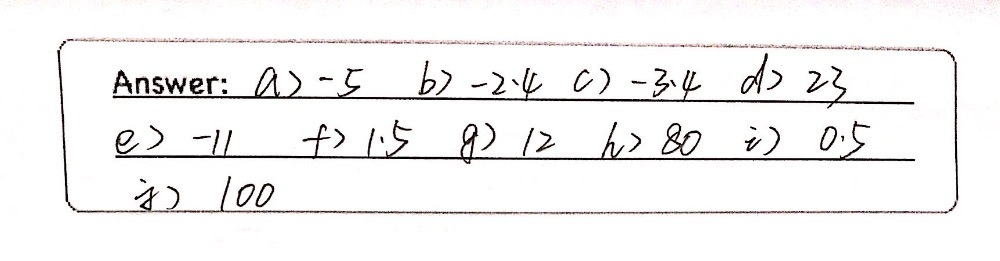 Answer: a) -5 b) -2.4 c) -3.4 d) 23
e) -11 f) 1.5 g) 12 h) 80 i) 0.5
j) 100